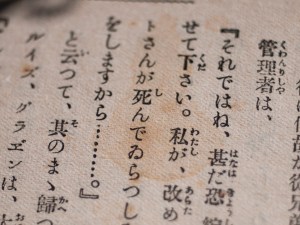 管理者は、
『それではね、甚だ恐
せて下さい。私が、改め
トさんが死んでゐらつし
をしますから………。』
と云つて、其のまゝ歸つ
ルイズ、グラヱンは、